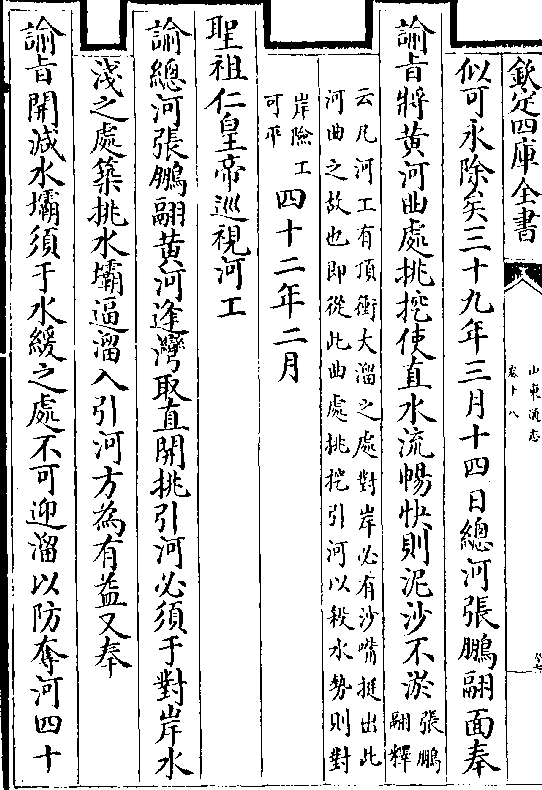 欽定四庫全書
山東通志
卷十八
似可永除矣三十九年三月十四日總河張鵬翮面奉
諭旨將黃河曲處挑挖使直水流暢快則泥沙不淤張鵬
翮釋
云凡河工有頂衝大溜之處對岸必有沙嘴挺出此
河曲之故也即從此曲處挑挖引河以殺水勢則對
岸險工
可平
四十二年二月
聖祖仁皇帝巡視河工
諭總河張鵬翮黃河逢灣取直開挑引河必須于對岸水
淺之處築挑水壩逼溜入引河方為有益又奉
諭旨開減水壩須于水緩之處不可迎溜以防奪河四十